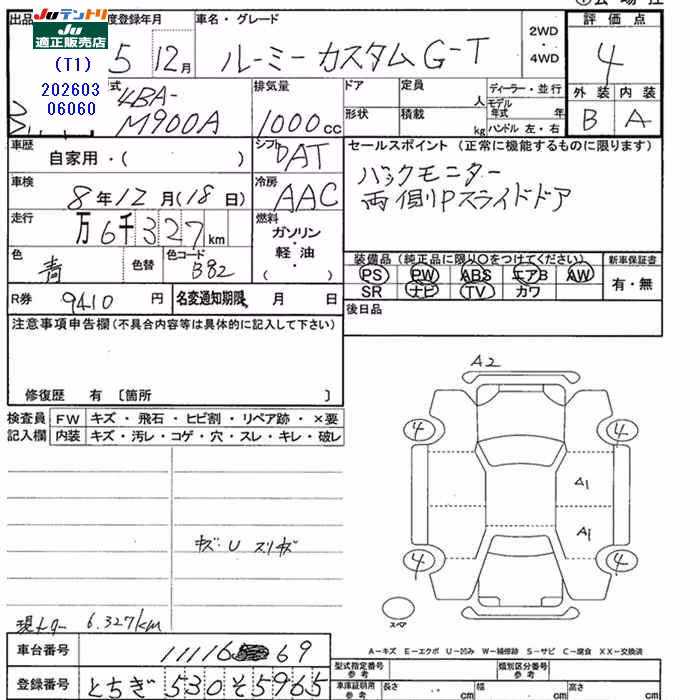 JUテントリ
JU適正販売店
(T1)
202603
06060
出品
度登録年月
5 12月
車名・グレード
ルーミー カスタム G-T
2WD
・
4WD
評価点
4
外装 内装
B A
式
4BA-
M900A
排気量
1000 cc
ドア
形状
定員 人
積載 kg
ディーラー・並行
モデル年式 年
ハンドル 左・右
車歴
自家用・( )
シフト
DAT
車検
8年12月(18日)
冷房
AAC
走行
万6千327km
燃料
ガソリン
・
軽油
( )
色
青
色替
色コード
B82
セールスポイント (正常に機能するものに限ります)
バックモニター
両側Pスライドドア
装備品 (純正品に限り〇をつけてください)
PS PW ABS エアB AW
SR ナビ TV カワ
新車保証書
有・無
R券 9410 円
名変通知期限 月 日
後日品
注意事項申告欄 (不具合内容等は具体的に記入して下さい)
修復歴 有 〔箇所 〕
検査員記入欄
FW キズ・飛石・ヒビ割・リペア跡・×要
内装 キズ・汚レ・コゲ・穴・スレ・キレ・破レ
キズ U スリキズ
現メーター 6,327km
A2
4
4
A1
A1
4
4
スペア
A-キズ E-エクボ U-凹み W-補修跡 S-サビ C-腐食 XX-交換済
車台番号
69
登録番号 とちぎ 530 そ 5965
型式指定番号
参考
類別区分番号
参考
車庫証明用
参考
長さ cm 幅 cm 高さ cm